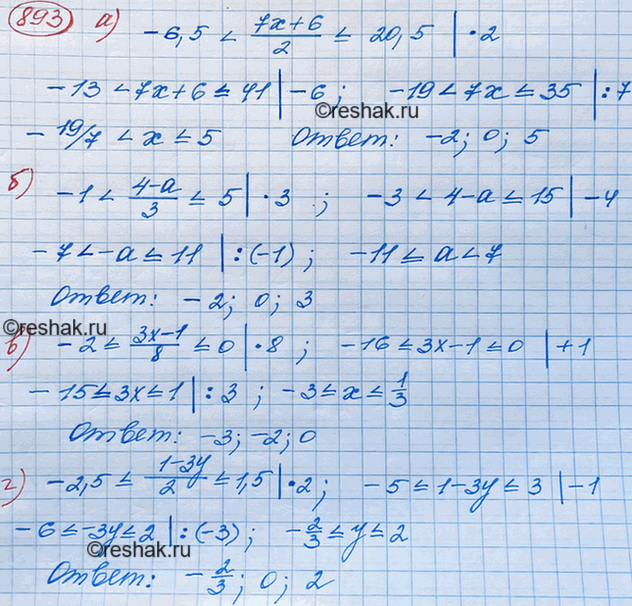 893 а) -6,5 < (7x+6)/2 ≤ 20,5 | ·2
-13 < 7x+6 ≤ 41 | -6 ; -19 < 7x ≤ 35 | :7
©reshak.ru
- 19/7 < x ≤ 5 Ответ: -2; 0; 5
б) -1 < (4-a)/3 ≤ 5 | ·3 ; -3 < 4-a ≤ 15 | -4
-7 < -a ≤ 11 | :(-1) ; -11 ≤ a < 7
Ответ: -2; 0; 3
©reshak.ru
в) -2 ≤ (3x-1)/8 ≤ 0 | ·8 ; -16 ≤ 3x-1 ≤ 0 | +1
-15 ≤ 3x ≤ 1 | :3 ; -3 ≤ x ≤ 1/3
Ответ: -3; -2; 0
г) -2,5 ≤ (1-3y)/2 ≤ 1,5 | ·2 ; -5 ≤ 1-3y ≤ 3 | -1
-6 ≤ -3y ≤ 2 | :(-3) ; -2/3 ≤ y ≤ 2
©reshak.ru
Ответ: -2/3; 0; 2